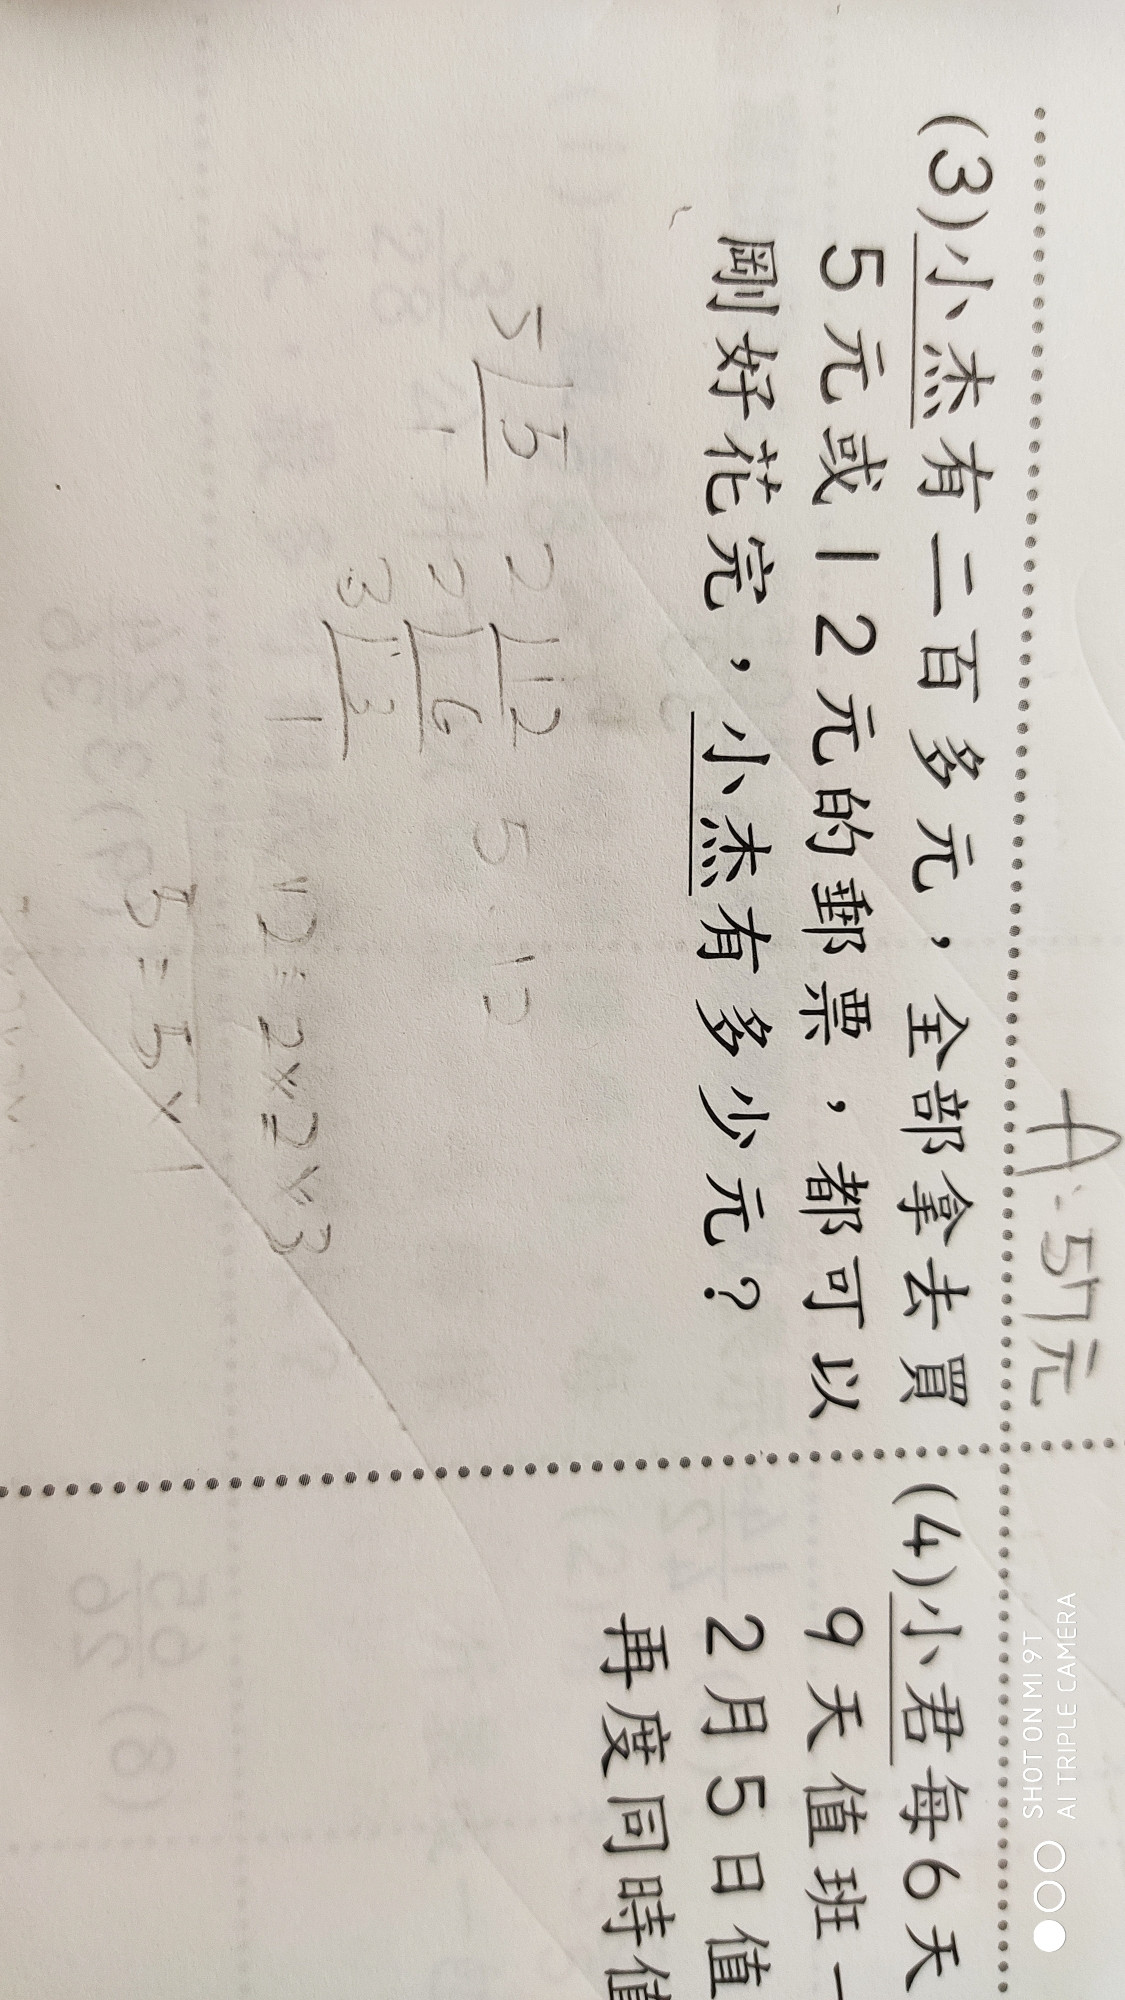 A: 57元
(3)小杰有二百多元，全部拿去買
5元或12元的郵票，都可以
剛好花完，小杰有多少元？
5 5 2 12
2 6
3 3
5 12
12=2×2×3
5=5×1
(4)小君每6天
9天值班一
2月5日值
再度同時值
SHOT ON MI 9T
AI TRIPLE CAMERA